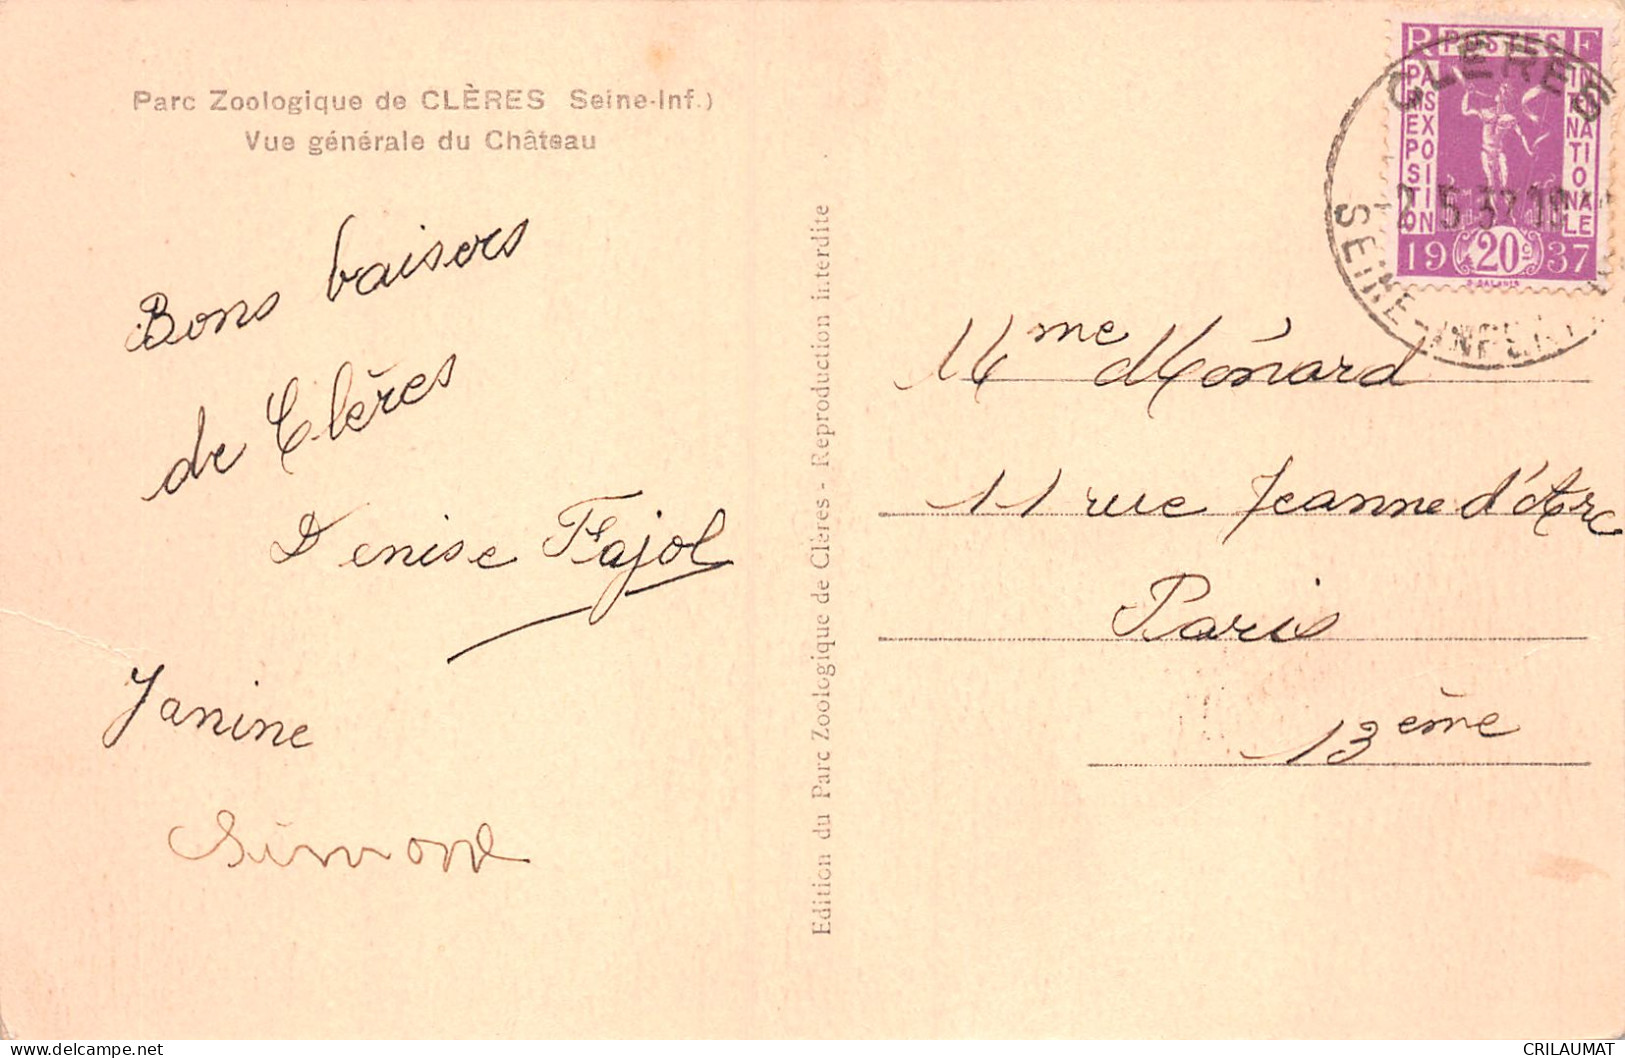 Parc Zoologique de CLÈRES Seine-Inf.)
Vue générale du Château
Bons baisers
de Clères
Denise Fajol
Janine
Simone
Edition du Parc Zoologique de Clères - Reproduction interdite
RF POSTES
PARIS EXPOSITION INTERNATIONALE
1937
20c
CLERES
2 5 37 18
SEINE-INFER
Mme Ménard
11 rue Jeanne d'Arc
Paris
13ème
CRILAUMAT